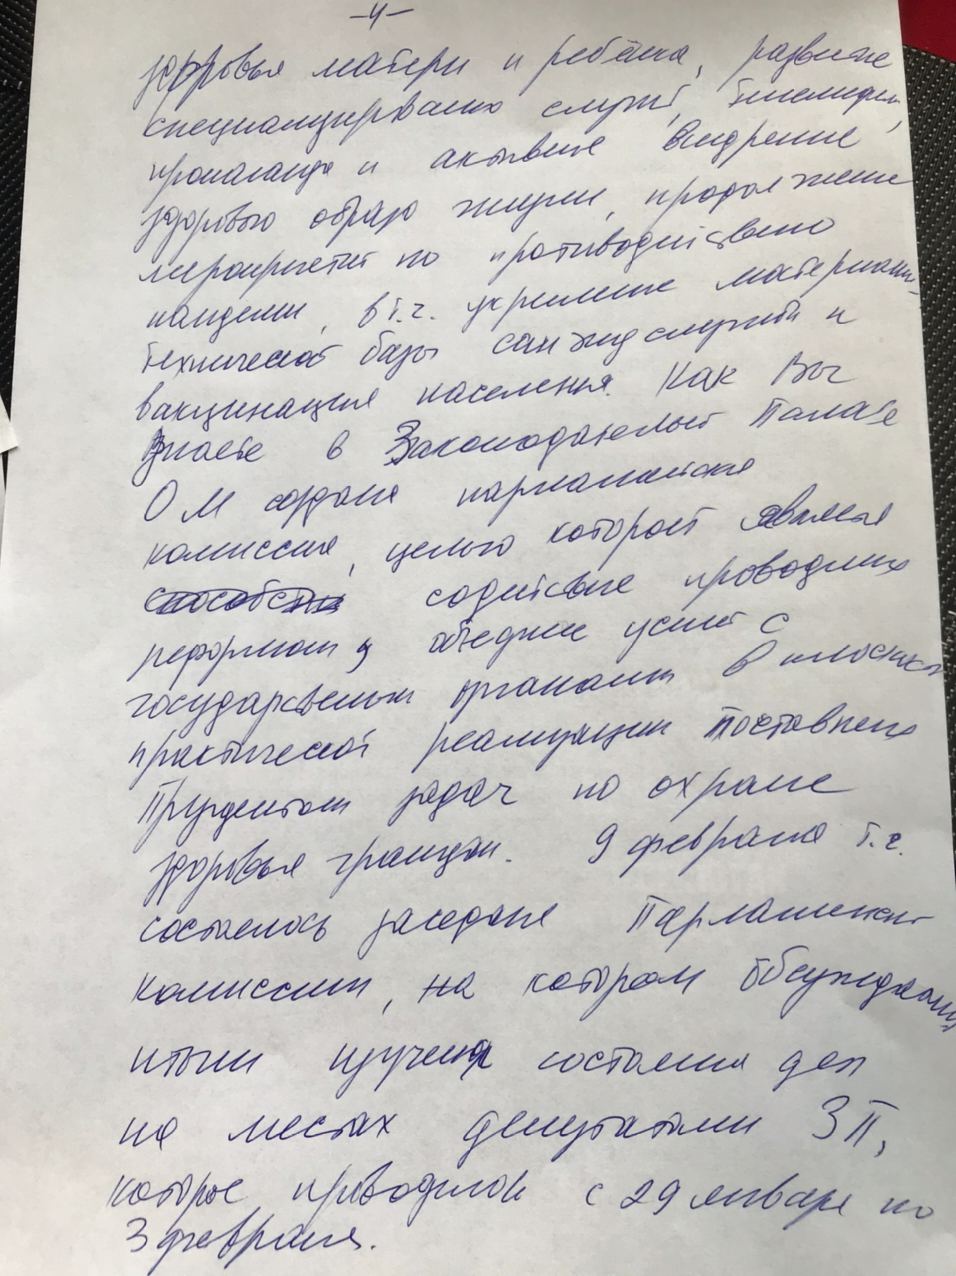 -4-
здоровья матери и ребёнка, развитие
специализированных служб,
пропаганда и активное внедрение
здорового образа жизни, продолжение
мероприятий по противодействию
пандемии, в т.ч. укрепление материально-
технической базы санэпидслужбы и
вакцинация населения. Как Вы
знаете в Законодательной Палате
ОМ создана парламентская
комиссия, целью которой является
содействие проводимым
реформам и объединение усилий с
государственными органами в плоскости
практической реализации поставленных
Президентом задач по охране
здоровья граждан. 9 февраля т.г.
состоялось заседание Парламентской
комиссии, на котором обсуждались
итоги изучения состояния дел
на местах депутатами ЗП,
которое проводилось с 29 января по
3 февраля.